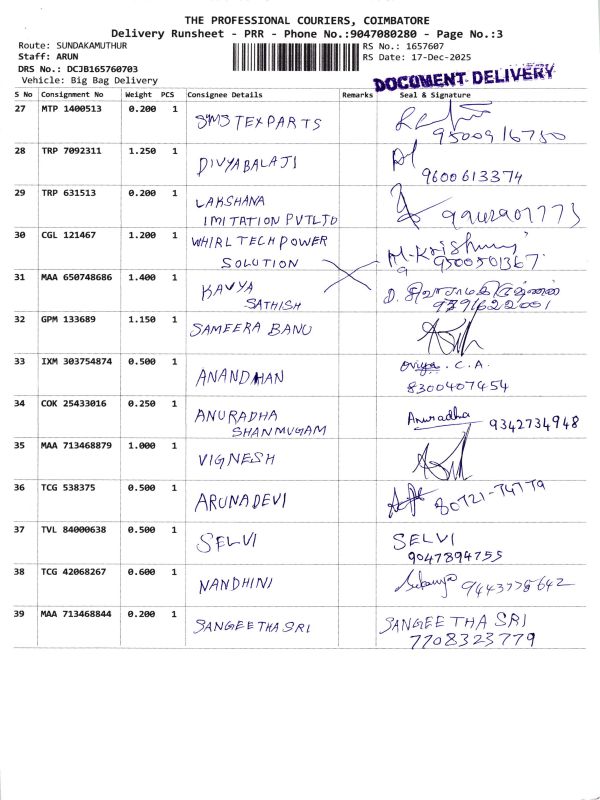 THE PROFESSIONAL COURIERS, COIMBATORE
Delivery Runsheet - PRR - Phone No.:9047080280 - Page No.:3
Route: SUNDAKAMUTHUR RS No.: 1657607
Staff: ARUN RS Date: 17-Dec-2025
DRS No.: DCJB165760703
Vehicle: Big Bag Delivery
DOCOMENT DELIVERY
S No Consignment No Weight PCS Consignee Details Remarks Seal & Signature
27 MTP 1400513 0.200 1 SMS TEXPARTS
9500916750
28 TRP 7092311 1.250 1 DIVYABALAJI
9600613374
29 TRP 631513 0.200 1 LAKSHANA
IMITATION PVTLTD
30 CGL 121467 1.200 1 WHIRL TECH POWER
SOLUTION 9500501367
31 MAA 650748686 1.400 1 KAVYA
SATHISH 9791622001
32 GPM 133689 1.150 1 SAMEERA BANU
33 IXM 303754874 0.500 1 ANANDHAN C.A.
8300407454
34 COK 25433016 0.250 1 ANURADHA Anuradha 9342734948
SHANMUGAM
35 MAA 713468879 1.000 1 VIGNESH
36 TCG 538375 0.500 1 ARUNADEVI 80721-74779
37 TVL 84000638 0.500 1 SELVI SELVI
9047894755
38 TCG 42068267 0.600 1 NANDHINI
39 MAA 713468844 0.200 1 SANGEETHASRI SANGEETHA SRI
7708323779